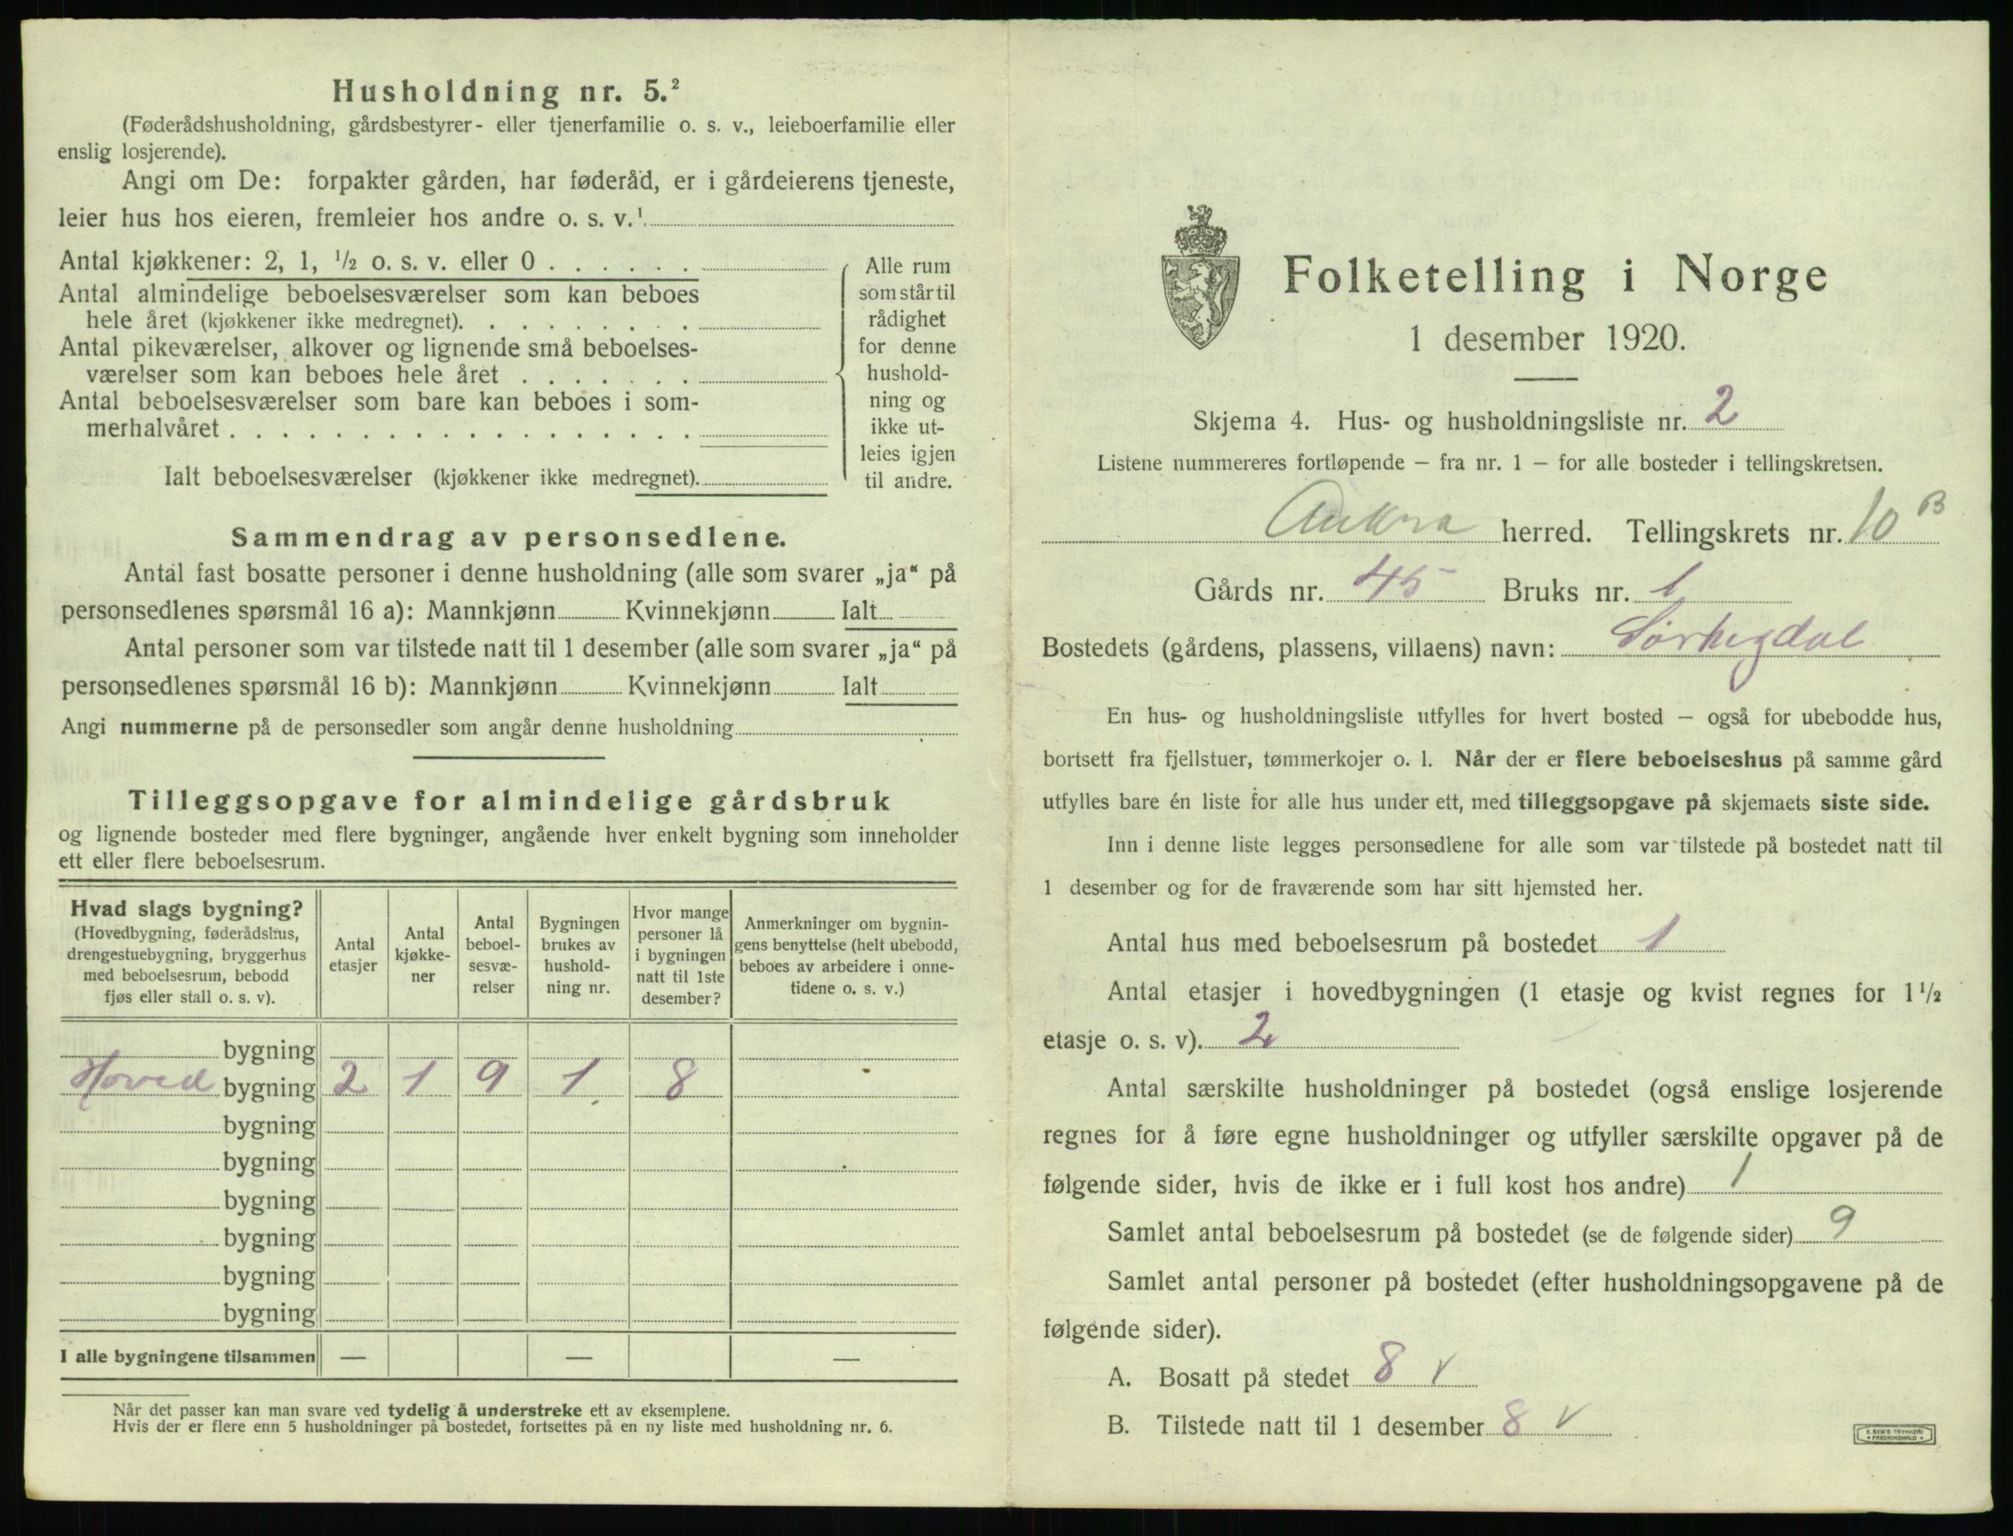 Husholdning nr. 5.²
(Føderådshusholdning, gårdsbestyrer- eller tjenerfamilie o. s. v., leieboerfamilie eller
enslig losjerende).
Angi om De: forpakter gården, har føderåd, er i gårdeierens tjeneste,
leier hus hos eieren, fremleier hos andre o. s. v.¹
Antal kjøkkener: 2, 1, ½ o. s. v. eller 0 . . . . . .
Antal almindelige beboelsesværelser som kan beboes
hele året (kjøkkener ikke medregnet). . . . . . . . .
Antal pikeværelser, alkover og lignende små beboelses-
værelser som kan beboes hele året . . . . . . .
Antal beboelsesværelser som bare kan beboes i som-
merhalvåret . . . . . . . . . . . . . . . . . .
Ialt beboelsesværelser (kjøkkener ikke medregnet).
Alle rum
som står til
rådighet
for denne
hushold-
ning og
ikke ut-
leies igjen
til andre.
Sammendrag av personsedlene.
Antal fast bosatte personer i denne husholdning (alle som svarer „ja“ på
personsedlenes spørsmål 16 a): Mannkjønn Kvinnekjønn Ialt
Antal personer som var tilstede natt til 1 desember (alle som svarer „ja“ på
personsedlenes spørsmål 16 b): Mannkjønn Kvinnekjønn Ialt
Angi nummerne på de personsedler som angår denne husholdning
Tilleggsopgave for almindelige gårdsbruk
og lignende bosteder med flere bygninger, angående hver enkelt bygning som inneholder
ett eller flere beboelsesrum.
Hvad slags bygning?
(Hovedbygning, føderådshus,
drengestuebygning, bryggerhus
med beboelsesrum, bebodd
fjøs eller stall o. s. v).
Antal
etasjer
Antal
kjøkke-
ner
Antal
beboel-
sesvæ-
relser
Bygningen
brukes av
hushold-
ning nr.
Hvor mange
personer lå
i bygningen
natt til 1ste
desember?
Anmerkninger om bygnin-
gens benyttelse (helt ubebodd,
beboes av arbeidere i onne-
tidene o. s. v.)
bygning
Hoved bygning 2 1 9 1 8
bygning
bygning
bygning
bygning
bygning
bygning
I alle bygningene tilsammen — — —
Når det passer kan man svare ved tydelig å understreke ett av eksemplene.
Hvis der er flere enn 5 husholdninger på bostedet, fortsettes på en ny liste med husholdning nr. 6.
Folketelling i Norge
1 desember 1920.
Skjema 4. Hus- og husholdningsliste nr. 2
Listene nummereres fortløpende — fra nr. 1 — for alle bosteder i tellingskretsen.
Aukra herred. Tellingskrets nr. 10 B
Gårds nr. 45 Bruks nr. 1
Bostedets (gårdens, plassens, villaens) navn: Sørhegdal
En hus- og husholdningsliste utfylles for hvert bosted — også for ubebodde hus,
bortsett fra fjellstuer, tømmerkojer o. l. Når der er flere beboelseshus på samme gård
utfylles bare én liste for alle hus under ett, med tilleggsopgave på skjemaets siste side.
Inn i denne liste legges personsedlene for alle som var tilstede på bostedet natt til
1 desember og for de fraværende som har sitt hjemsted her.
Antal hus med beboelsesrum på bostedet 1
Antal etasjer i hovedbygningen (1 etasje og kvist regnes for 1½
etasje o. s. v). 2
Antal særskilte husholdninger på bostedet (også enslige losjerende
regnes for å føre egne husholdninger og utfyller særskilte opgaver på de
følgende sider, hvis de ikke er i full kost hos andre) 1
Samlet antal beboelsesrum på bostedet (se de følgende sider) 9
Samlet antal personer på bostedet (efter husholdningsopgavene på de
følgende sider).
A. Bosatt på stedet 8 v
B. Tilstede natt til 1 desember 8 v
E. SEM'S TRYKKERI
FREDRIKSHALD